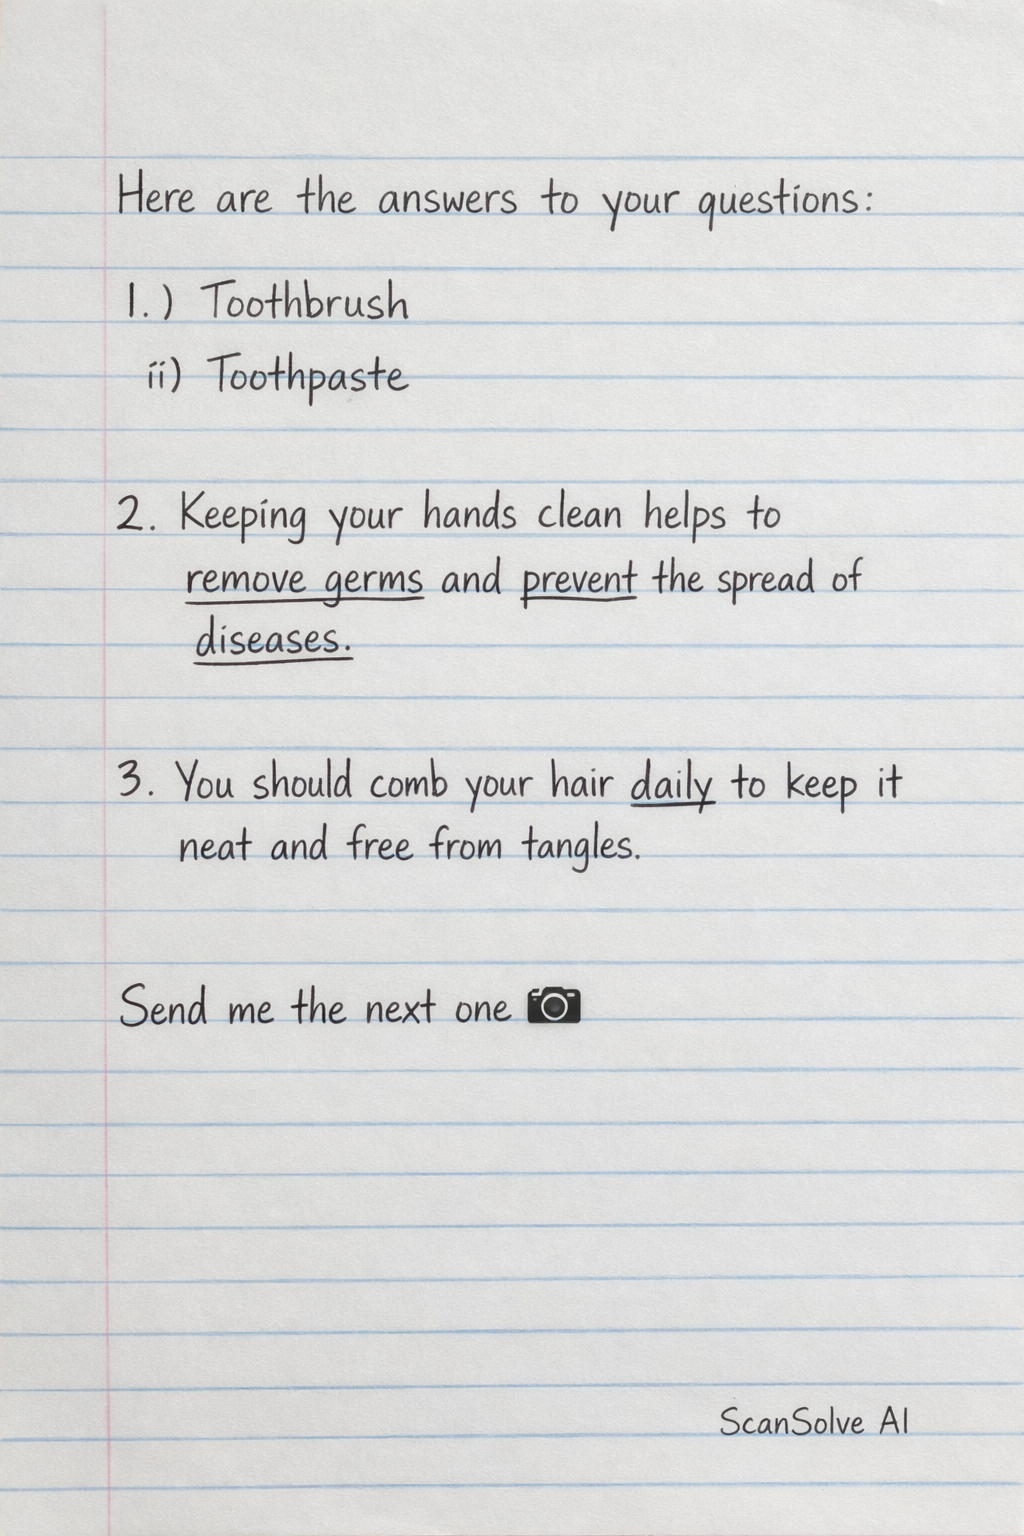 Here are the answers to your questions:
1.) Toothbrush
ii) Toothpaste
2. Keeping your hands clean helps to
remove germs and prevent the spread of
diseases.
3. You should comb your hair daily to keep it
neat and free from tangles.
Send me the next one 📷
ScanSolve AI